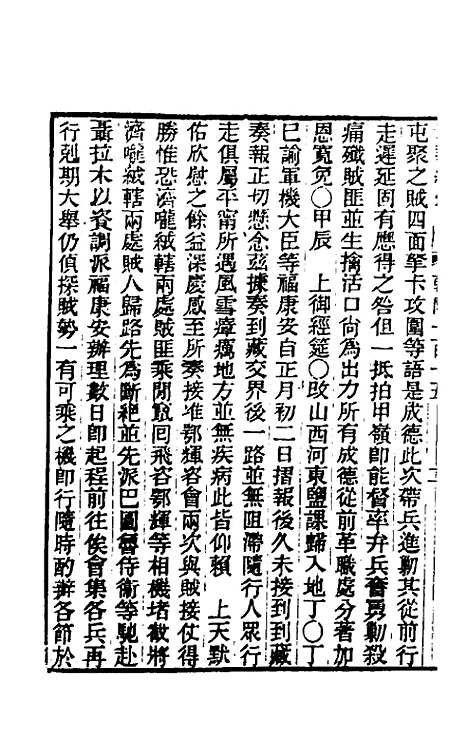 屯聚之賊四面擎卡攻圍等語是成德此次帶兵進勦其從前行
走遲延固有應得之咎但一抵拍甲嶺即能督率弁兵奮勇勦殺
痛殲賊匪並生擒活口尚為出力所有成德從前革職處分著加
恩寬免○甲辰　上御經筵○改山西河東鹽課歸入地丁○丁
巳諭軍機大臣等福康安自正月初二日摺報後久未接到到藏
奏報正切懸念茲據奏到藏交界後一路並無阻滯隨行人眾行
走俱屬平甯所過風雪瘴癘地方並無疾病此皆仰賴　上天默
佑欣慰之餘益深慶感至所奏接准鄂輝咨會兩次與賊接仗得
勝惟恐濟嚨絨轄兩處賊匪乘閒竄回飛咨鄂輝等相機堵截將
濟嚨絨轄兩處賊人歸路先為斷絕並先派巴圖魯侍衛等馳赴
聶拉木以資調派福康安辦理數日即起程前往俟會集各兵再
行剋期大舉仍偵探賊勢一有可乘之機即行隨時酌辦各節於